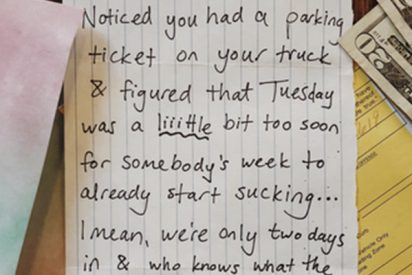 Noticed you had a parking
ticket on your truck
& figured that Tuesday
was a liiittle bit too soon
for somebody's week to
already start sucking...
I mean, we're only two days
in & who knows what the
20